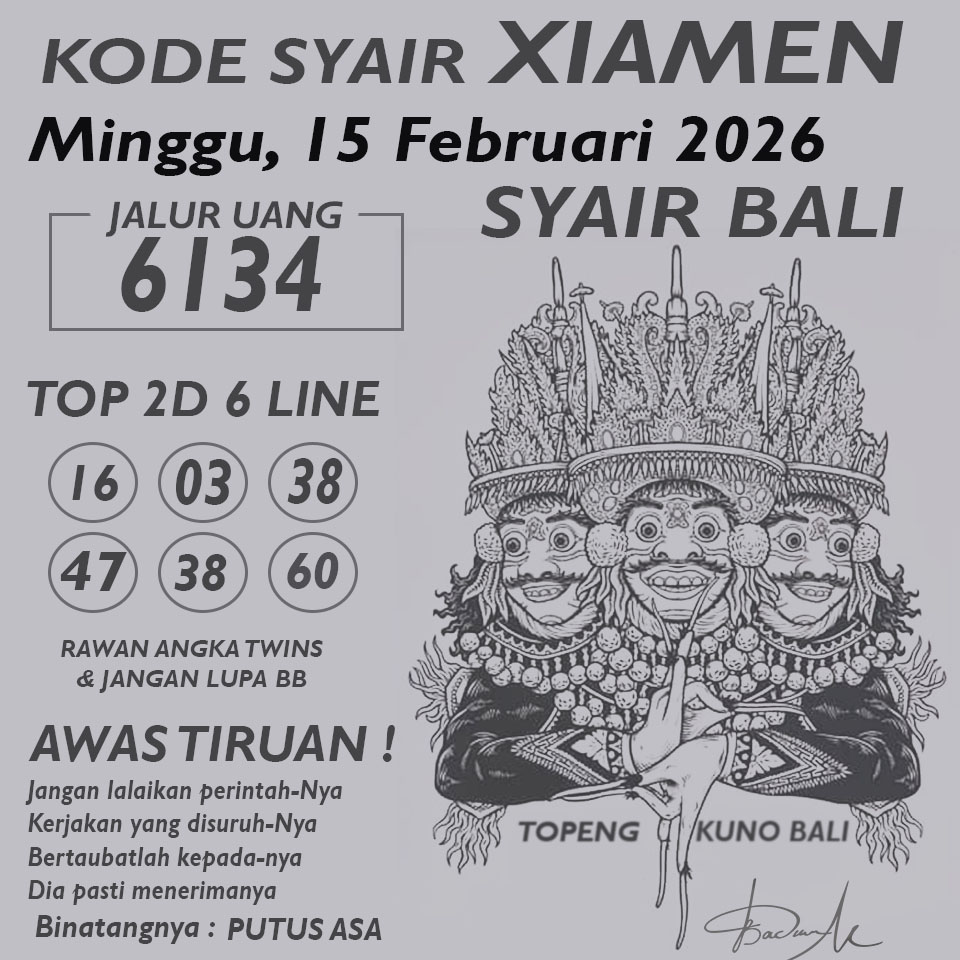 KODE SYAIR XIAMEN
Minggu, 15 Februari 2026
SYAIR BALI
JALUR UANG
6134
TOP 2D 6 LINE
16 03 38
47 38 60
RAWAN ANGKA TWINS
& JANGAN LUPA BB
AWAS TIRUAN !
Jangan lalaikan perintah-Nya
Kerjakan yang disuruh-Nya
Bertaubatlah kepada-nya
Dia pasti menerimanya
Binatangnya : PUTUS ASA
TOPENG KUNO BALI